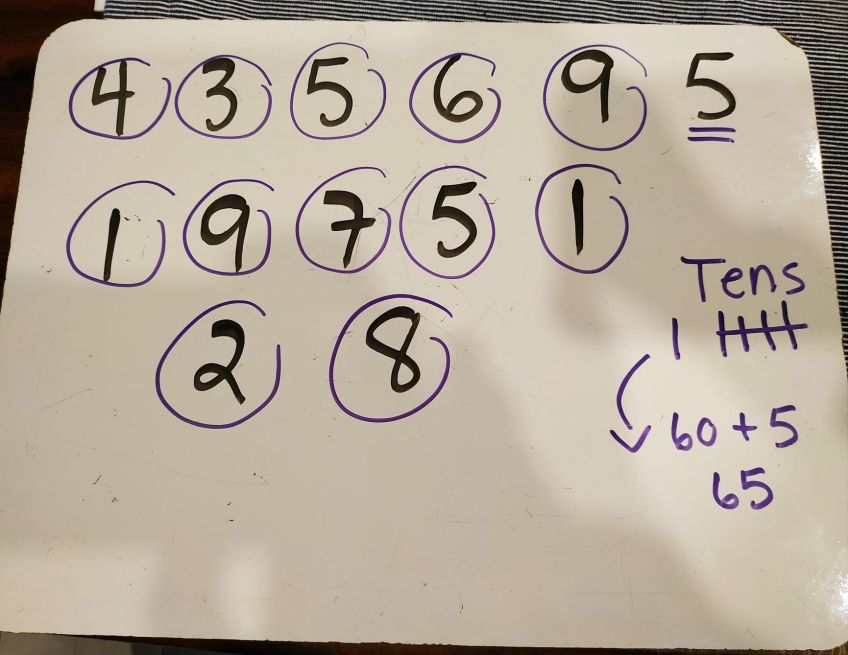 4 3 5 6 9 5
1 9 7 5 1
2 8
Tens
1 卌
60 + 5
65